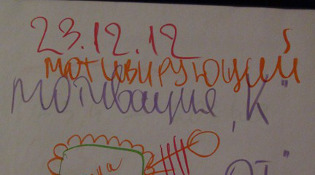 23.12.12
мотивирующий
мотивация „К"
„ОТ"